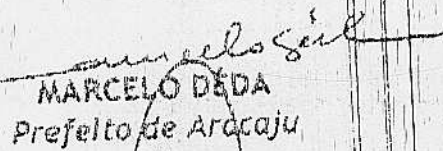 MARCELO DÉDA
Prefeito de Aracaju